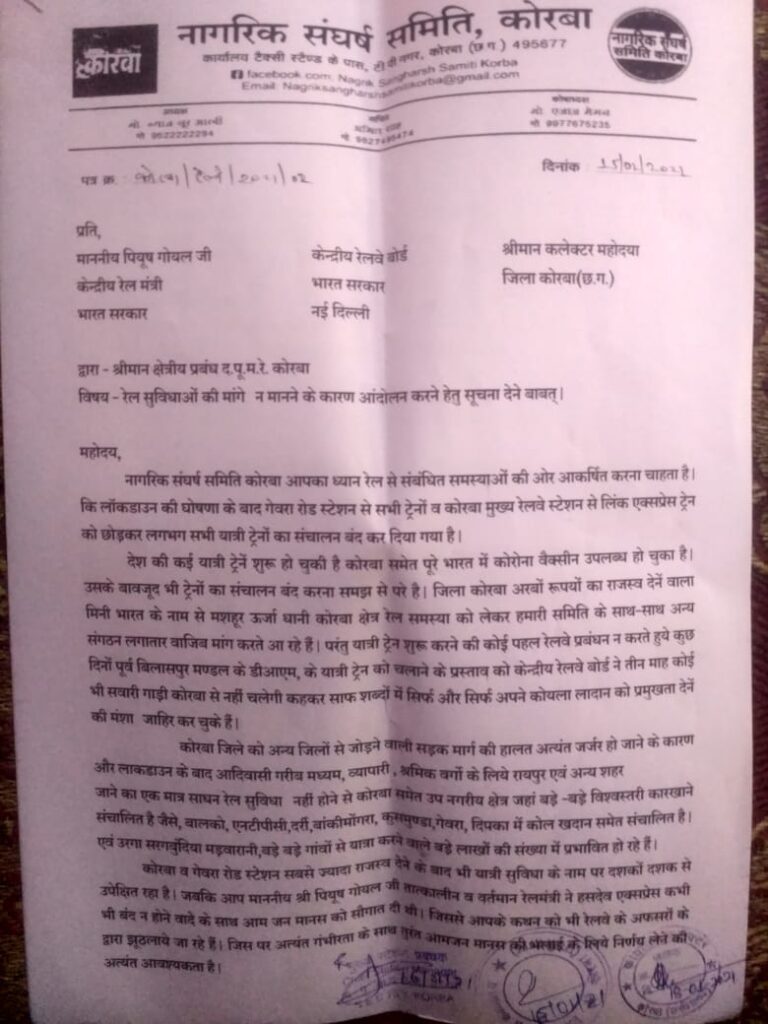 कोरबा
नागरिक संघर्ष समिति, कोरबा
नागरिक संघर्ष
समिति कोरबा
कार्यालय टैक्सी स्टैण्ड के पास, टी पी नगर, कोरबा (छ.ग.) 495677
facebook.com: Nagrik Sangharsh Samiti Korba
Email: Nagriksangharshsamitikorba@gmail.com
अध्यक्ष
मो. 9522222294
सचिव
कोषाध्यक्ष
मो. 9977675235
पत्र क्र. 
दिनांक 15/01/2021
प्रति,
माननीय पियूष गोयल जी
केन्द्रीय रेलवे बोर्ड
श्रीमान कलेक्टर महोदया
केन्द्रीय रेल मंत्री
भारत सरकार
जिला कोरबा(छ.ग.)
भारत सरकार
नई दिल्ली
द्वारा - श्रीमान क्षेत्रीय प्रबंध द.पू.म.रे. कोरबा
विषय - रेल सुविधाओं की मांगे न मानने के कारण आंदोलन करने हेतु सूचना देने बाबत्।
महोदय,
नागरिक संघर्ष समिति कोरबा आपका ध्यान रेल से संबंधित समस्याओं की ओर आकर्षित करना चाहता है।
कि लॉकडाउन की घोषणा के बाद गेवरा रोड स्टेशन से सभी ट्रेनों व कोरबा मुख्य रेलवे स्टेशन से लिंक एक्सप्रेस ट्रेन
को छोड़कर लगभग सभी यात्री ट्रेनों का संचालन बंद कर दिया गया है।
देश की कई यात्री ट्रेनें शुरू हो चुकी है कोरबा समेत पूरे भारत में कोरोना वैक्सीन उपलब्ध हो चुका है।
उसके बावजूद भी ट्रेनों का संचालन बंद करना समझ से परे है। जिला कोरबा अरबों रूपयों का राजस्व देनें वाला
मिनी भारत के नाम से मशहूर ऊर्जा धानी कोरबा क्षेत्र रेल समस्या को लेकर हमारी समिति के साथ-साथ अन्य
संगठन लगातार वाजिब मांग करते आ रहे हैं। परंतु यात्री ट्रेन शुरू करने की कोई पहल रेलवे प्रबंधन न करते हुये कुछ
दिनों पूर्व बिलासपुर मण्डल के डीआएम, के यात्री ट्रेन को चलाने के प्रस्ताव को केन्द्रीय रेलवे बोर्ड ने तीन माह कोई
भी सवारी गाड़ी कोरबा से नहीं चलेगी कहकर साफ शब्दों में सिर्फ और सिर्फ अपने कोयला लादान को प्रमुखता देनें
की मंशा जाहिर कर चुके हैं।
कोरबा जिले को अन्य जिलों से जोड़ने वाली सड़क मार्ग की हालत अत्यंत जर्जर हो जाने के कारण
और लाकडाउन के बाद आदिवासी गरीब मध्यम, व्यापारी , श्रमिक वर्गो के लिये रायपुर एवं अन्य शहर
जाने का एक मात्र साधन रेल सुविधा नहीं होने से कोरबा समेत उप नगरीय क्षेत्र जहां बड़े -बड़े विश्वस्तरी कारखाने
संचालित है जैसे, बालको, एनटीपीसी,दर्री,बांकीमोंगरा, कुसमुण्डा,गेवरा, दिपका में कोल खदान समेत संचालित है।
एवं उरगा सरगबुंदिया मड़वारानी,बड़े बड़े गांवों से यात्रा करने वाले बड़े लाखों की संख्या में प्रभावित हो रहे हैं।
कोरबा व गेवरा रोड स्टेशन सबसे ज्यादा राजस्व देने के बाद भी यात्री सुविधा के नाम पर दशकों दशक से
उपेक्षित रहा है। जबकि आप माननीय श्री पियूष गोयल जी तात्कालीन व वर्तमान रेलमंत्री ने हसदेव एक्सप्रेस कभी
भी बंद न होनें वादे के साथ आम जन मानस को सौगात दी थी। जिससे आपके कथन को भी रेलवे के अफसरों के
द्वारा झूठलाये जा रहे हैं। जिस पर अत्यंत गंभीरता के साथ तुरंत आमजन मानस की भलाई के लिये निर्णय लेने की
अत्यंत आवश्यकता है।
16/01/21